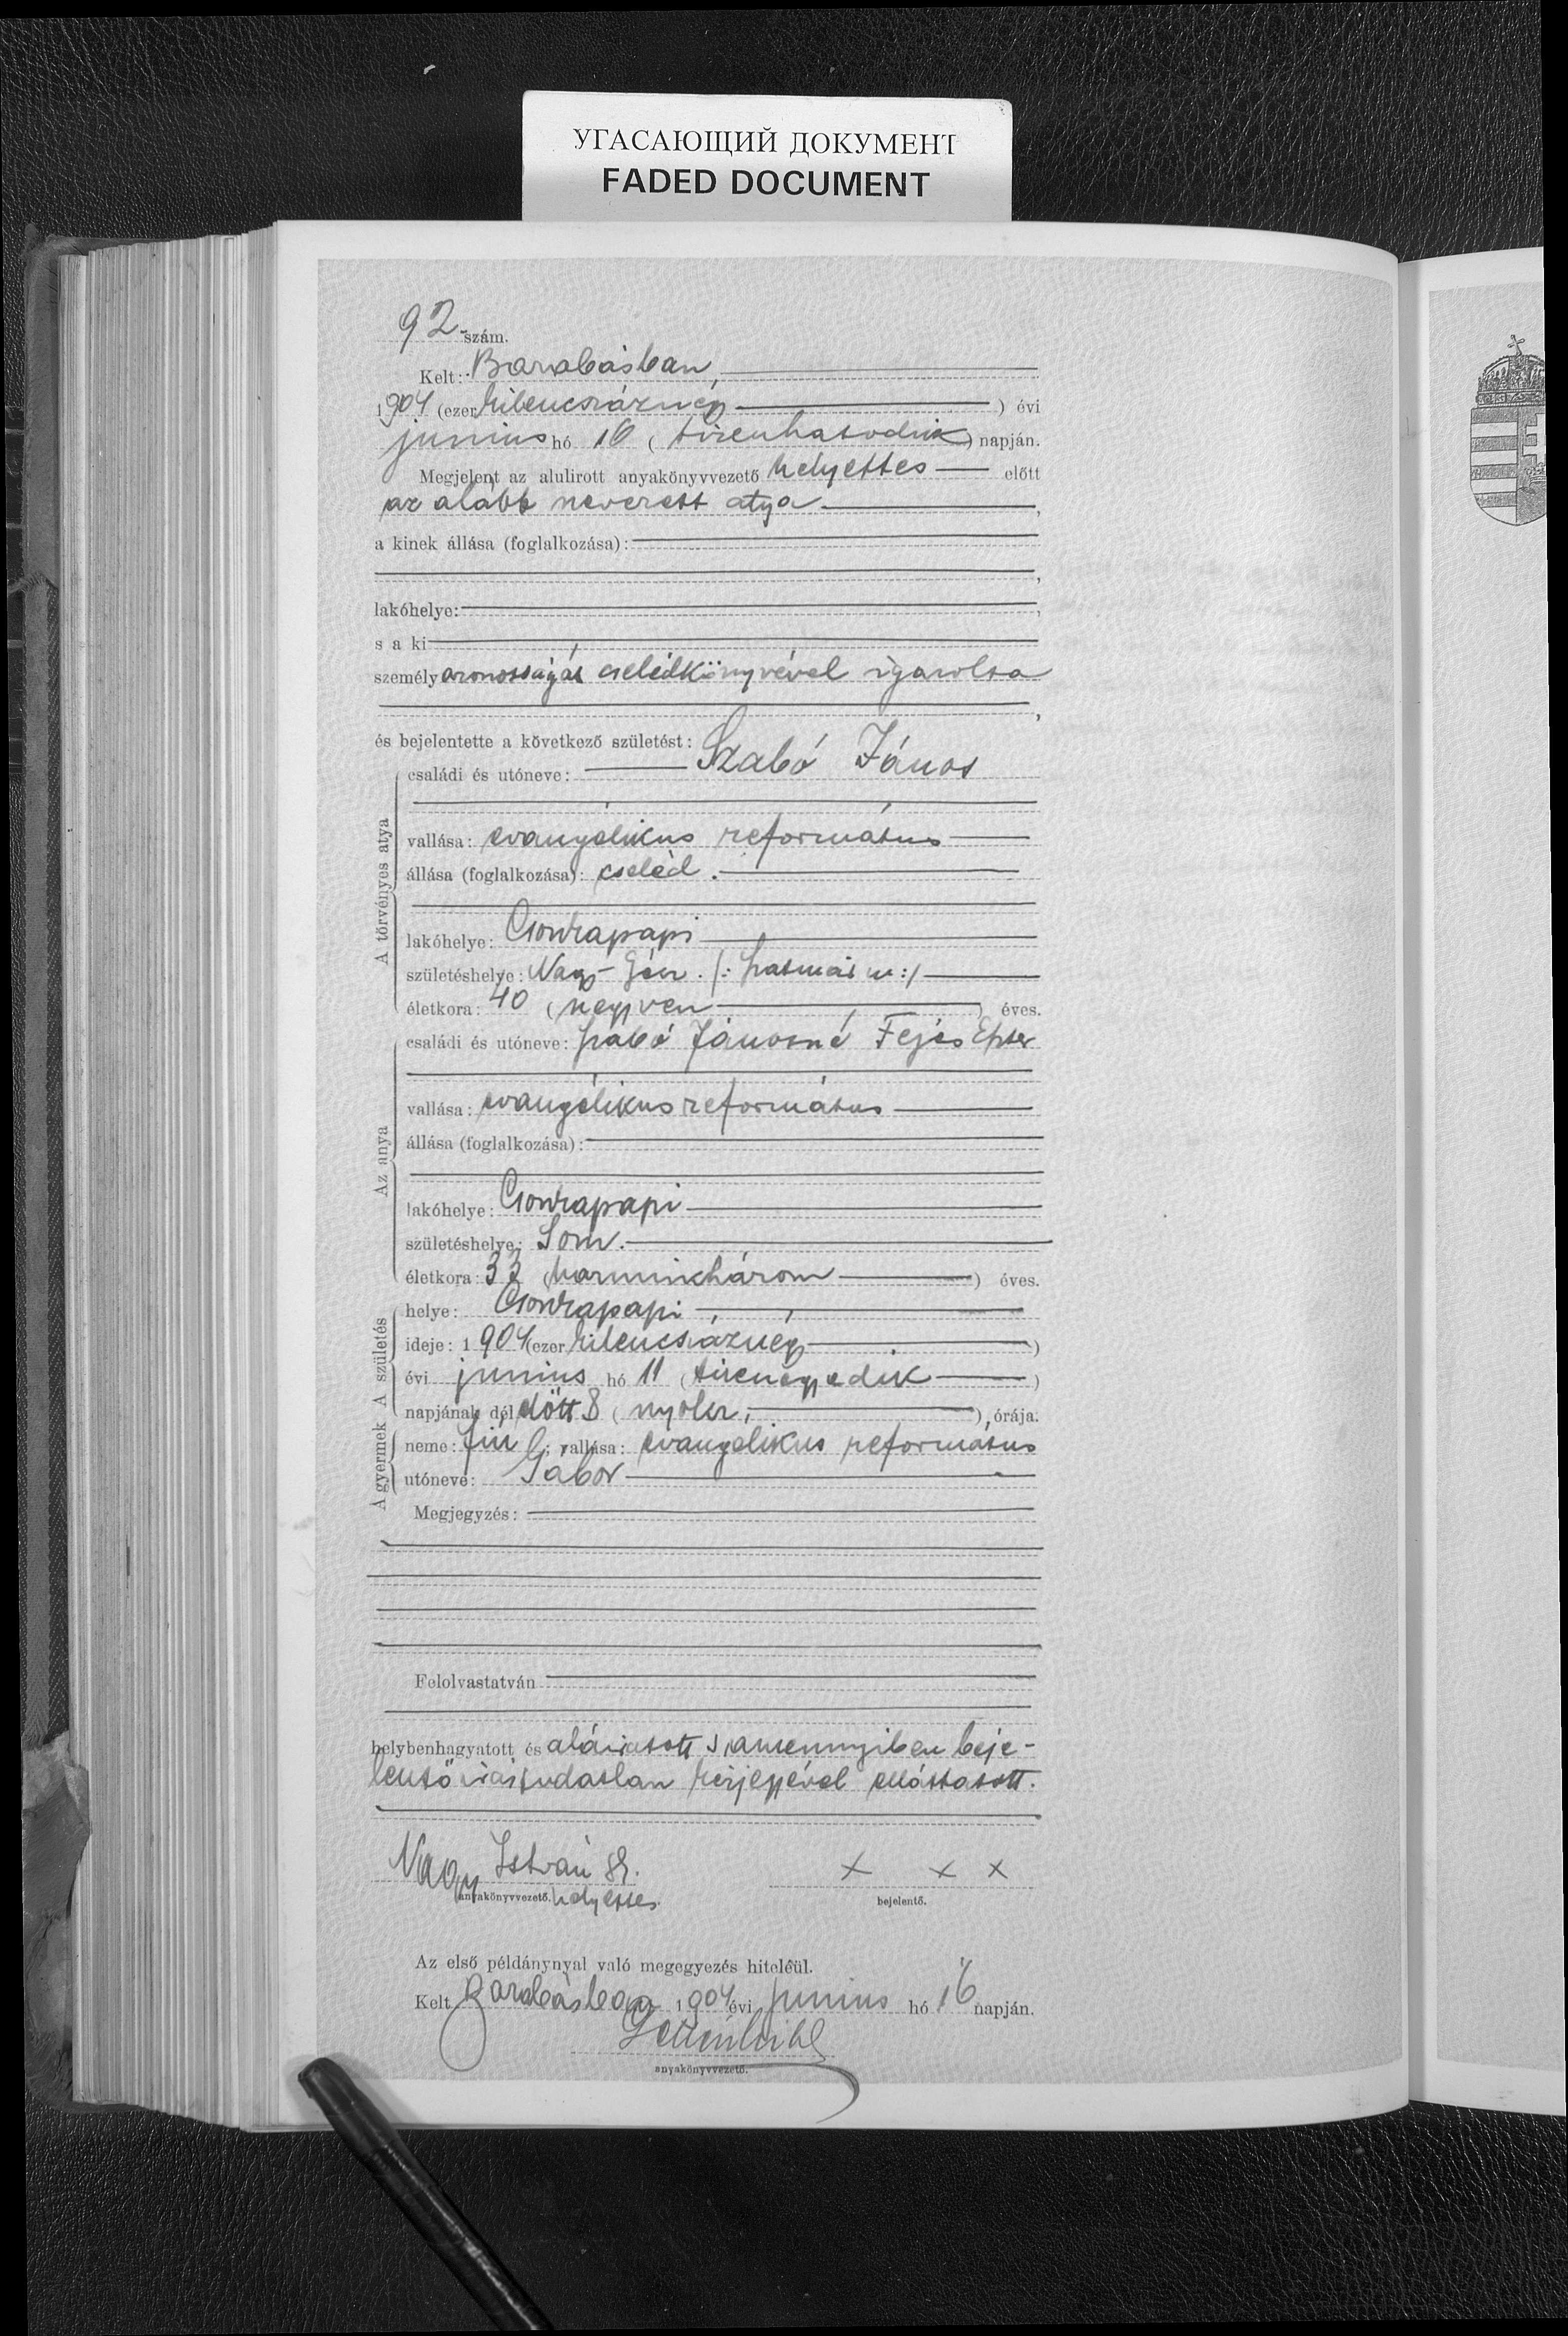 УГАСАЮЩИЙ ДОКУМЕНТ
FADED DOCUMENT
92 szám.
Kelt: Barabásban,
1904 (ezerkilencszáznégy) évi
junius hó 16 (tizenhatodik) napján.
Megjelent az alulirott anyakönyvvezető helyettes előtt
az alább nevezett atya,
a kinek állása (foglalkozása):
,
lakóhelye: ,
s a ki
személyazonosságát cselédkönyvével igazolta
,
és bejelentette a következő születést:
A törvényes atya
családi és utóneve: Szabó János
vallása: evangélikus református
állása (foglalkozása): cseléd.
lakóhelye: Csonkapapi
születéshelye: Nagy-Gécz. /: Szatmár m :/
életkora: 40 (negyven) éves.
Az anya
családi és utóneve: Szabó Jánosné Fejes Eszter
vallása: evangélikus református
állása (foglalkozása):
lakóhelye: Csonkapapi
születéshelye: Som.
életkora: 33 (harminchárom) éves.
A születés
helye: Csonkapapi
ideje: 1904 (ezerkilencszáznégy)
évi junius hó 11 (tizenegyedik)
napjának délelőtt 8 (nyolcz) órája.
A gyermek
neme: fiú; vallása: evangelikus református
utóneve: Gábor
Megjegyzés:
Felolvastatván
helybenhagyatott és aláiratott s amennyiben beje-
lentő irástudatlan kézjegyével elláttatott.
Nagy István
anyakönyvvezető. helyettes
x x x
bejelentő.
Az első példánynyal való megegyezés hiteléül.
Kelt Barabásban 1904 évi junius hó 16 napján.
anyakönyvvezető.